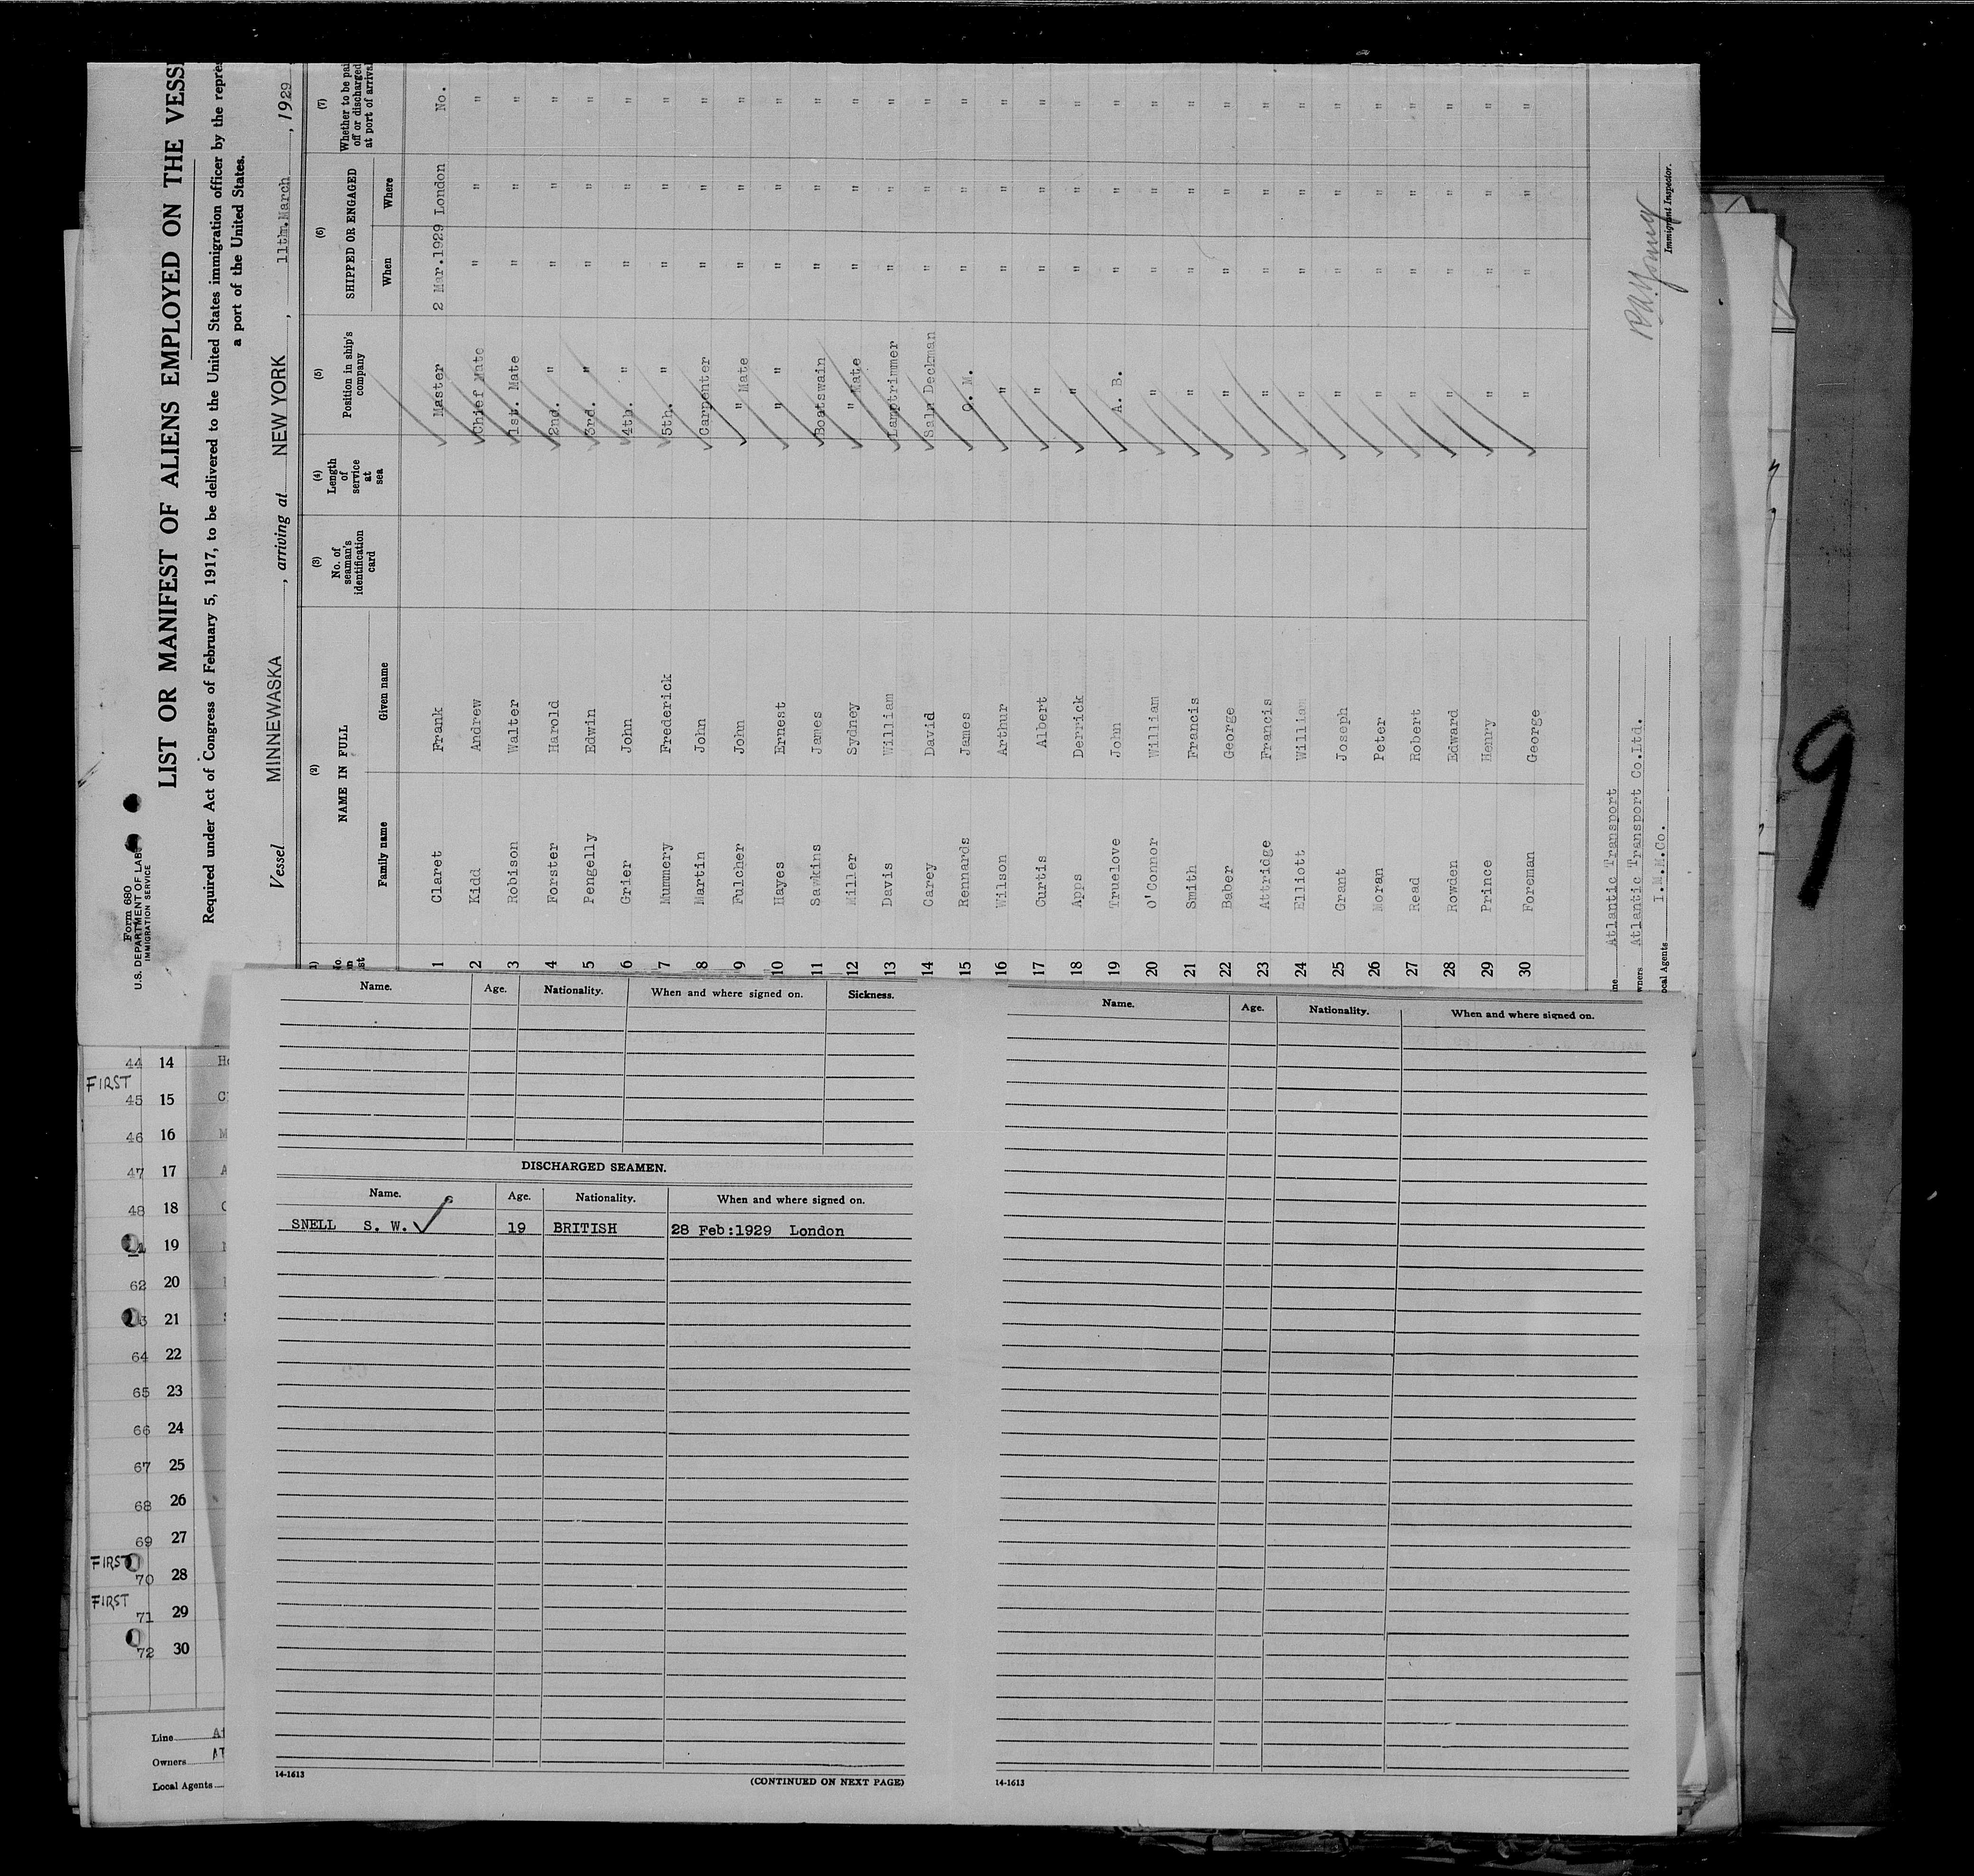 Form 680
U.S. DEPARTMENT OF LAB
IMMIGRATION SERVICE
LIST OR MANIFEST OF ALIENS EMPLOYED ON THE VESS
Required under Act of Congress of February 5, 1917, to be delivered to the United States immigration officer by the repre
a port of the United States.
Vessel MINNEWASKA, arriving at NEW YORK, 11th.March, 1929
(2) (3) (4) (5) (6) (7)
NAME IN FULL No. of seaman's identification card Length of service at sea Position in ship's company SHIPPED OR ENGAGED Whether to be pai off or discharged at port of arrival
Family name Given name When Where
1 Claret Frank Master 2 Mar.1929 London No.
2 Kidd Andrew Chief Mate " " "
3 Robison Walter 1st. Mate " " "
4 Forster Harold 2nd. " " " "
5 Pengelly Edwin 3rd. " " " "
6 Grier John 4th. " " " "
7 Mummery Frederick 5th. " " " "
8 Martin John Carpenter " " "
9 Fulcher John " Mate " " "
10 Hayes Ernest " " " " "
11 Sawkins James Boatswain " " "
12 Miller Sydney " Mate " " "
13 Davis William Lamptrimmer " " "
14 Carey David Saln Deckman " " "
15 Rennards James Q. M. " " "
16 Wilson Arthur " " " "
17 Curtis Albert " " " "
18 Apps Derrick " " " "
19 Truelove John A. B. " " "
20 O'Connor William " " " "
21 Smith Francis " " " "
22 Baber George " " " "
23 Attridge Francis " " " "
24 Elliott William " " " "
25 Grant Joseph " " " "
26 Moran Peter " " " "
27 Read Robert " " " "
28 Rowden Edward " " " "
29 Prince Henry " " " "
30 Foreman George " " " "
ne Atlantic Transport
wners Atlantic Transport Co.Ltd.
ocal Agents I.M.M.Co.
Immigrant Inspector.
9
44 14 Ho
FIRST
45 15
46 16 M
47 17 A
48 18
19
62 20
21
64 22
65 23
66 24
67 25
68 26
69 27
FIRST
70 28
FIRST
71 29
72 30
Line At
Owners AT
Local Agents
Name. Age. Nationality. When and where signed on. Sickness.
DISCHARGED SEAMEN.
Name. Age. Nationality. When and where signed on.
SNELL S. W. 19 BRITISH 28 Feb:1929 London
14-1613 (CONTINUED ON NEXT PAGE)
Name. Age. Nationality. When and where signed on.
14-1613